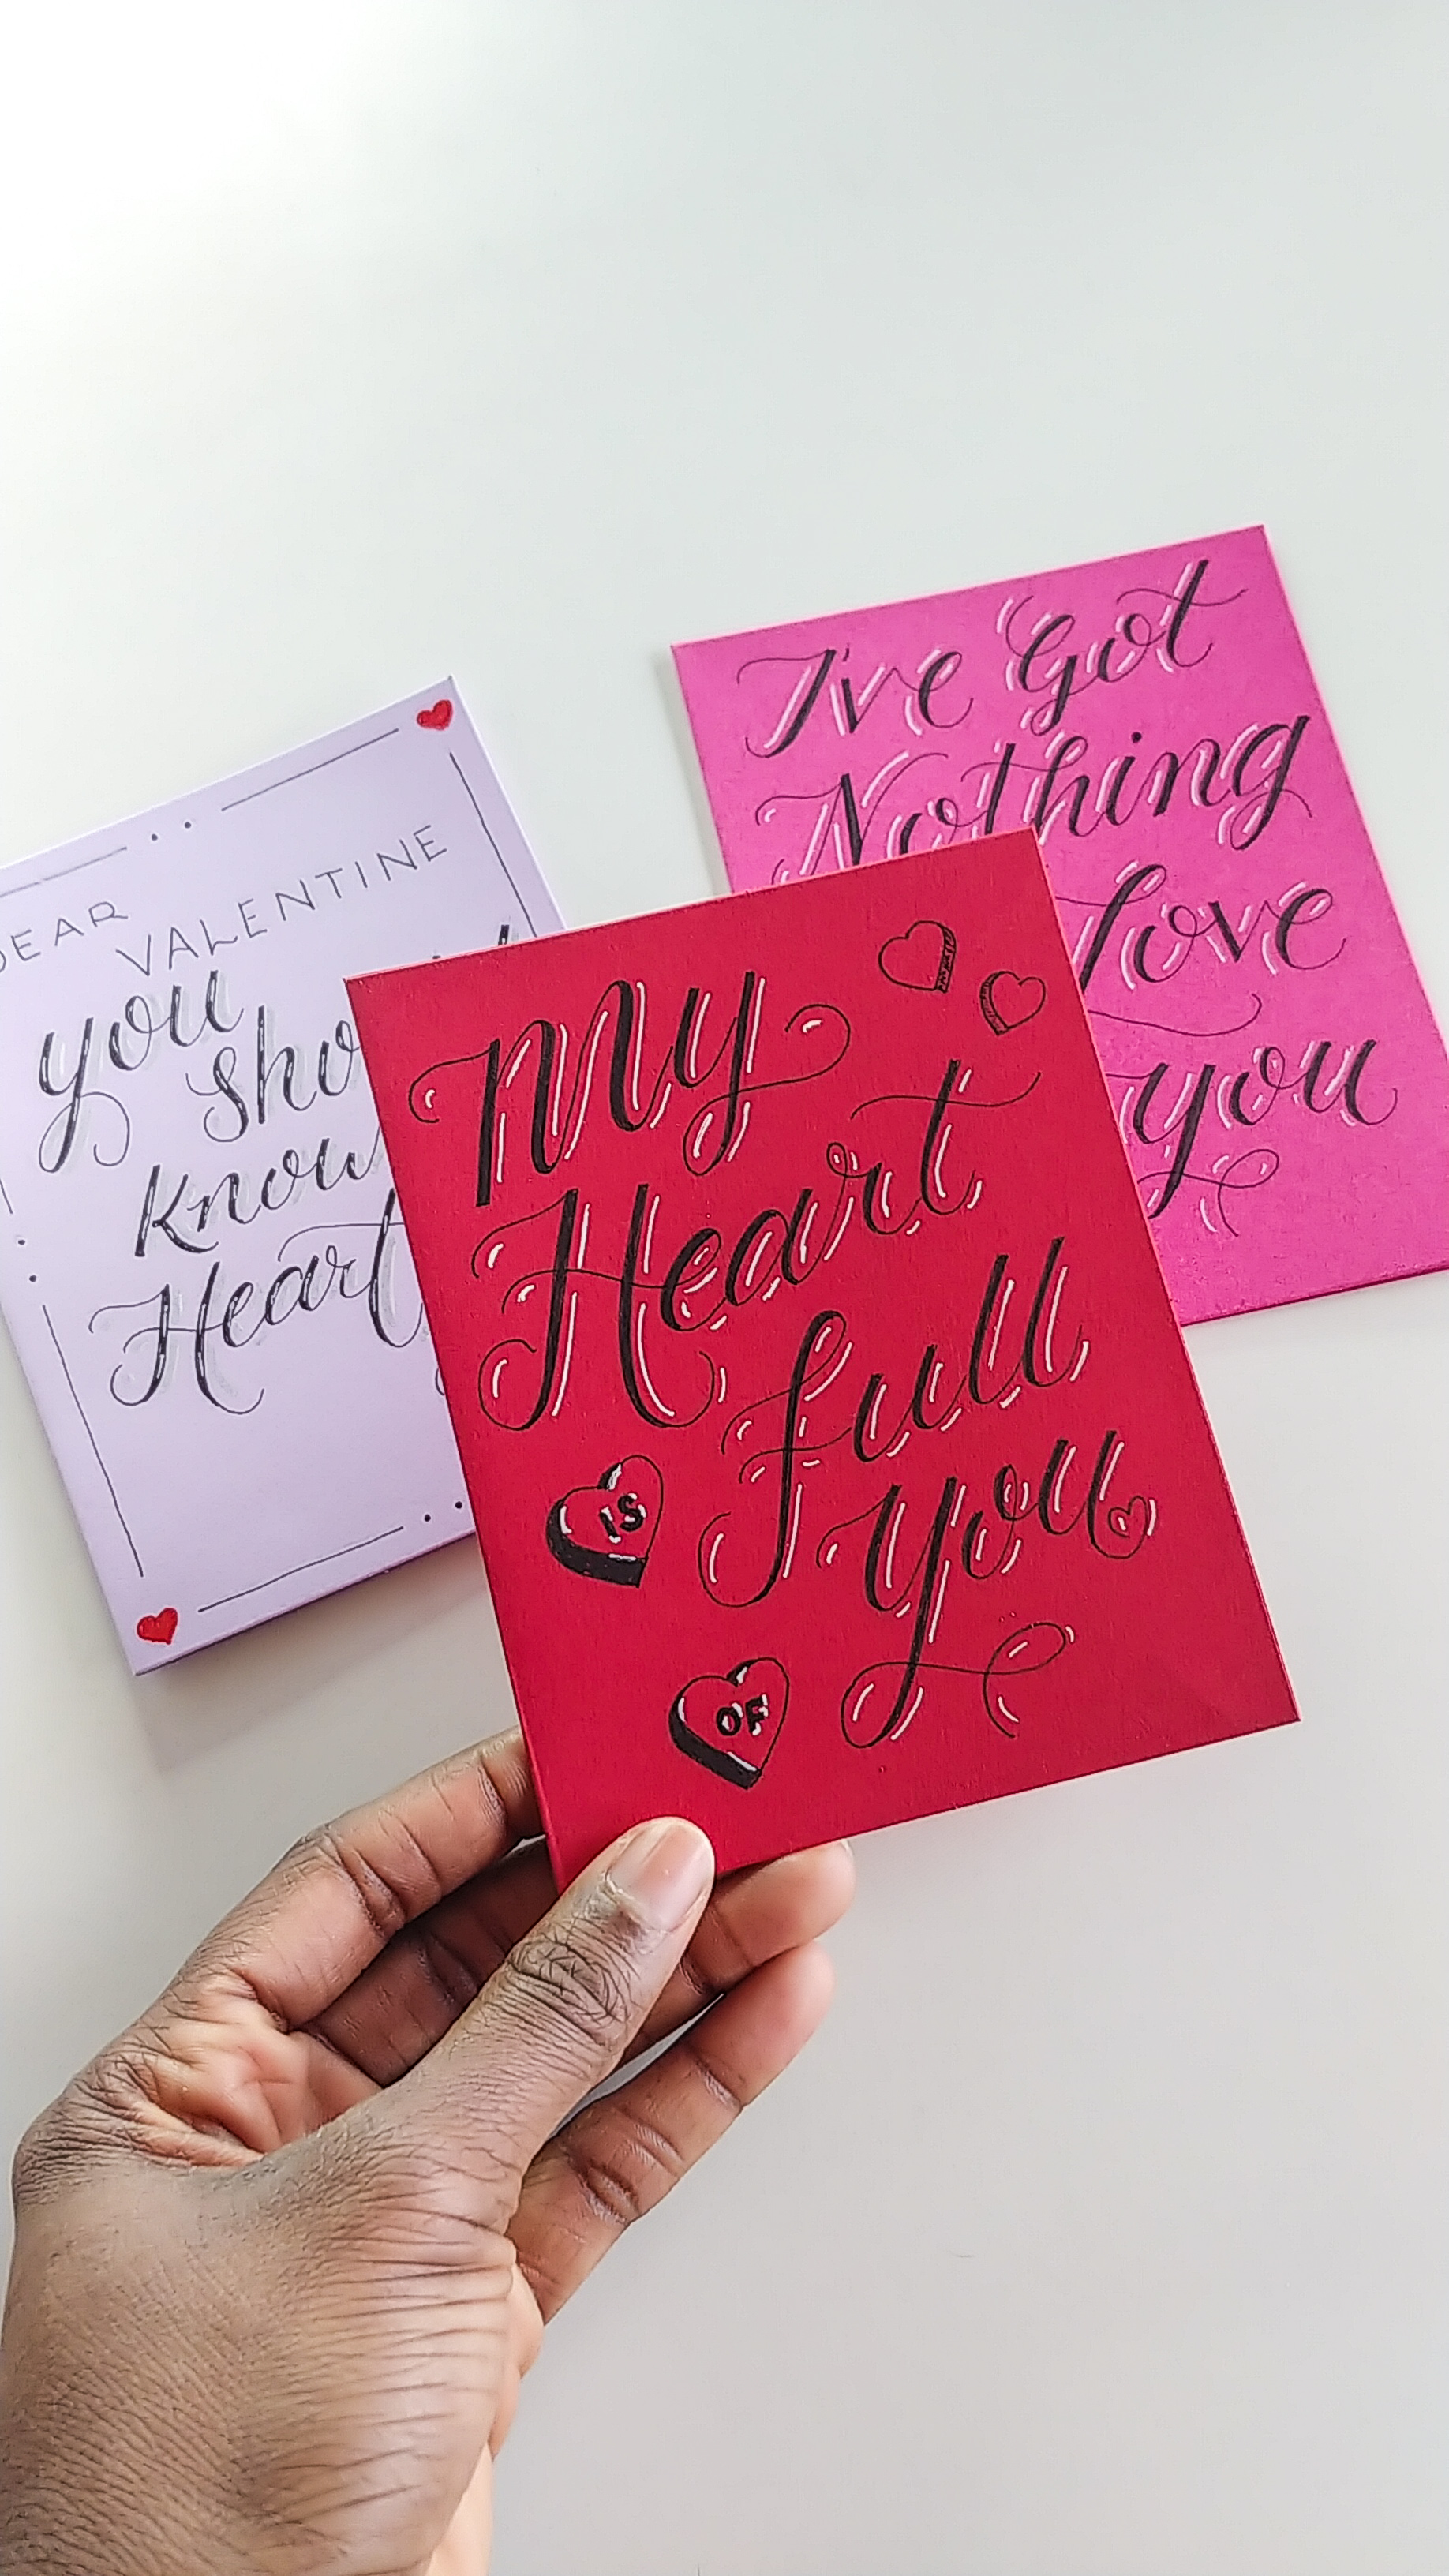 DEAR
VALENTINE
you
know
Heart
I've Got
Nothing
Love
you
My
Heart
IS
full
OF
You